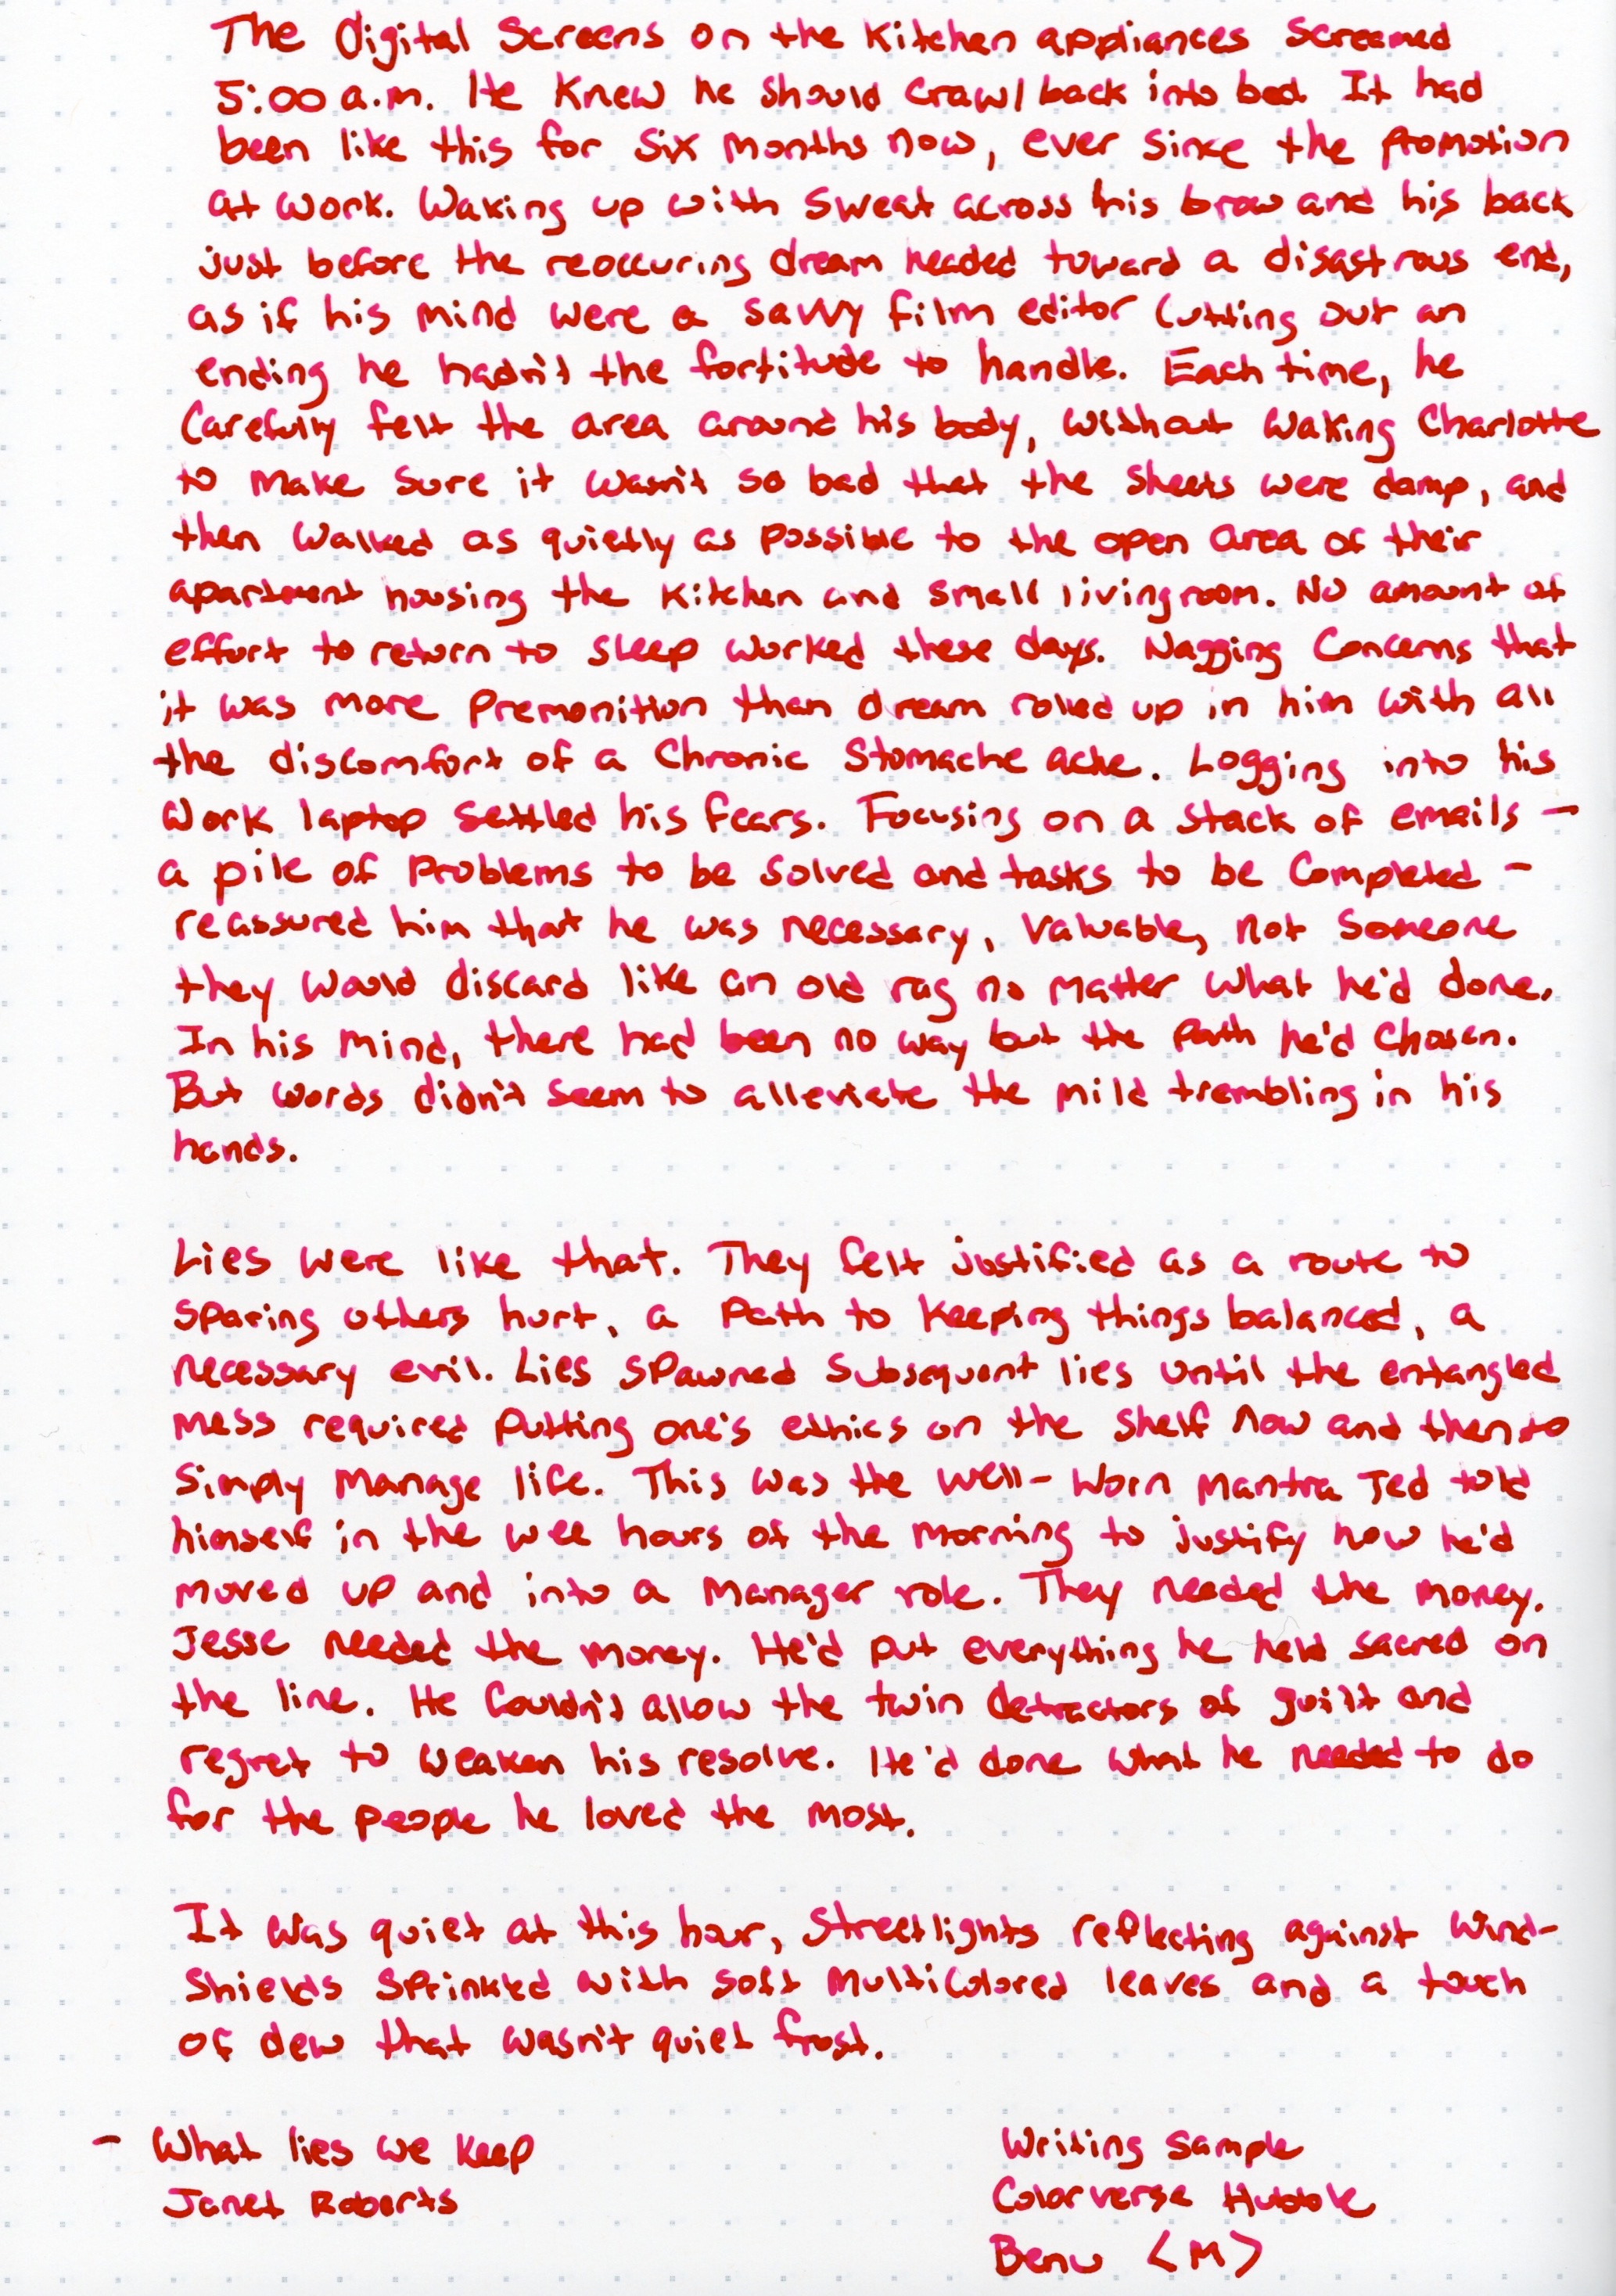 The Digital Screens on the Kitchen appliances Screamed
5:00 a.m. He Knew he should crawl back into bed. It had
been like this for six months now, ever since the promotion
at work. Waking up with sweat across his brow and his back
just before the reoccuring dream headed toward a disastrous end,
as if his mind were a savvy film editor cutting out an
ending he hadn't the fortitude to handle. Each time, he
Carefully felt the area around his body, without waking Charlotte
to make sure it wasn't so bad that the sheets were damp, and
then walked as quietly as possible to the open area of their
apartment housing the kitchen and small livingroom. No amount of
effort to return to sleep worked these days. Nagging Concerns that
it was more premonition than dream rolled up in him with all
the discomfort of a Chronic Stomache ache. Logging into his
work laptop settled his fears. Focusing on a stack of emails -
a pile of problems to be solved and tasks to be completed -
reassured him that he was necessary, valuable, not someone
they would discard like an old rag no matter what he'd done.
In his mind, there had been no way but the path he'd chosen.
But words didn't seem to alleviate the mild trembling in his
hands.
Lies were like that. They felt justified as a route to
sparing others hurt, a path to keeping things balanced, a
necessary evil. Lies spawned subsequent lies until the entangled
mess required putting one's ethics on the shelf now and then to
simply manage life. This was the well-worn mantra Ted told
himself in the wee hours of the morning to justify how he'd
moved up and into a manager role. They needed the money.
Jesse needed the money. He'd put everything he held sacred on
the line. He couldn't allow the twin detractors of guilt and
regret to weaken his resolve. He'd done what he needed to do
for the people he loved the most.
It was quiet at this hour, streetlights reflecting against wind-
shields sprinkled with soft multicolored leaves and a touch
of dew that wasn't quiet frost.
- What lies we keep
Janet Roberts
Writing sample
Colorverse Hubble
Benu <M>